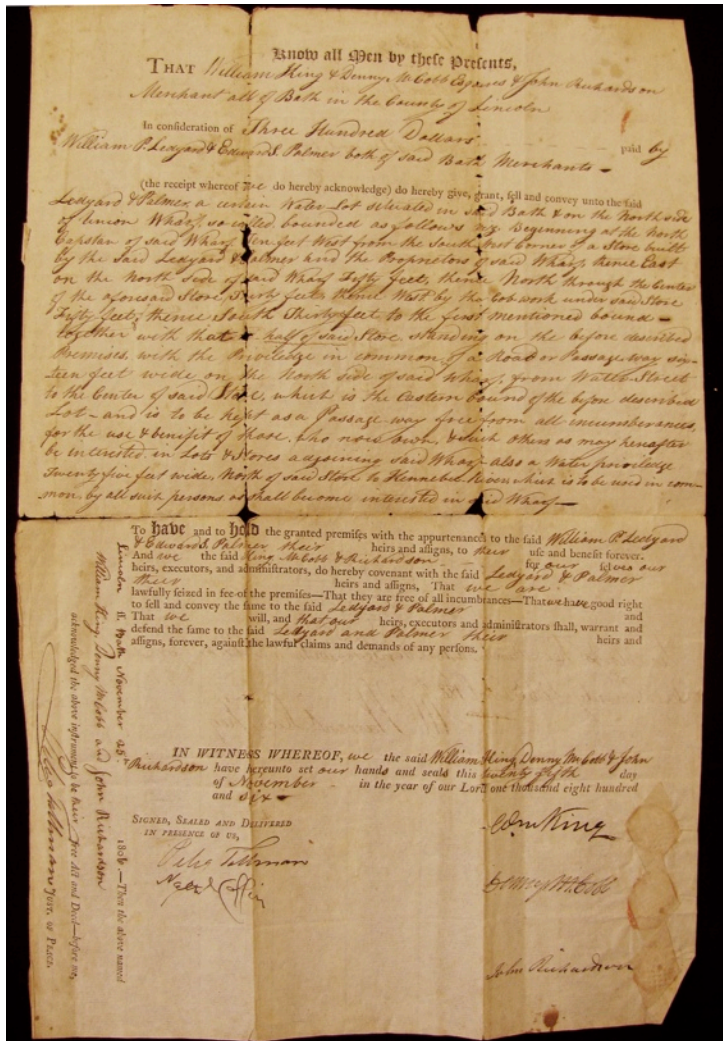 Know all Men by these Presents,
THAT William King & Denny McCobb Esquires & John Richardson
Merchant all of Bath in the County of Lincoln
In consideration of Three Hundred Dollars paid by
William P. Ledyard & Edward S. Palmer both of said Bath Merchants —
(the receipt whereof we do hereby acknowledge) do hereby give, grant, sell and convey unto the said
Ledyard & Palmer, a certain Water Lot situated in said Bath & on the North side
of Union Wharf, so called, bounded as follows Beginning at the North
Capstan of said Wharf Ten feet West from the South West Corner of a Store built
by the said Ledyard & Palmer and the Proprietors of said Wharf, thence East
on the North Side of said Wharf Fifty feet, thence North through the Center
of the aforesaid Store, Thirty feet, thence West by the Cobwork under said Store
Fifty feet, thence South Thirty feet to the first mentioned bound —
together with that half of said Store, standing on the before described
Premises, with the Priviledge in common, of a Road or Passage way six-
teen feet wide on the North Side of said Wharf, from Water Street
to the Center of said Store, which is the Eastern bound of the before described
Lot — and is to be kept as a Passage way free from all incumberances,
for the use & benifit of those who now own, & such others as may hereafter
be interested in Lots & Stores adjoining said Wharf — also a Water priviledge
Twenty five feet wide, North of said Store to Kennebec River which is to be used in com-
mon, by all such persons as shall become interested in said Wharf —
To have and to held the granted premises with the appurtenances to the said William P. Ledyard
& Edward S. Palmer their heirs and assigns, to their use and benefit forever.
And we the said King McCobb & Richardson for our selves our
heirs, executors, and administrators, do hereby covenant with the said Ledyard & Palmer
their heirs and assigns, That we are
lawfully seized in fee of the premises—That they are free of all incumbrances—That we have good right
to sell and convey the same to the said Ledyard & Palmer and
That we will, and that our heirs, executors and administrators shall, warrant and
defend the same to the said Ledyard and Palmer their heirs and
assigns, forever, against the lawful claims and demands of any persons.
IN WITNESS WHEREOF, we the said William King Denny McCobb & John
Richardson have hereunto set our hands and seals this twenty fifth day
of November in the year of our Lord one thousand eight hundred
and six
SIGNED, SEALED AND DELIVERED
IN PRESENCE OF US,
Peleg Tallman
Wm King
Denny McCobb
John Richardson
Lincoln ss. Bath November 25th 1806 —Then the above named
William King Denny McCobb and John Richardson
acknowledged the above instrument to be their free Act and Deed—before me,
Peleg Tallman JUST. of PEACE.